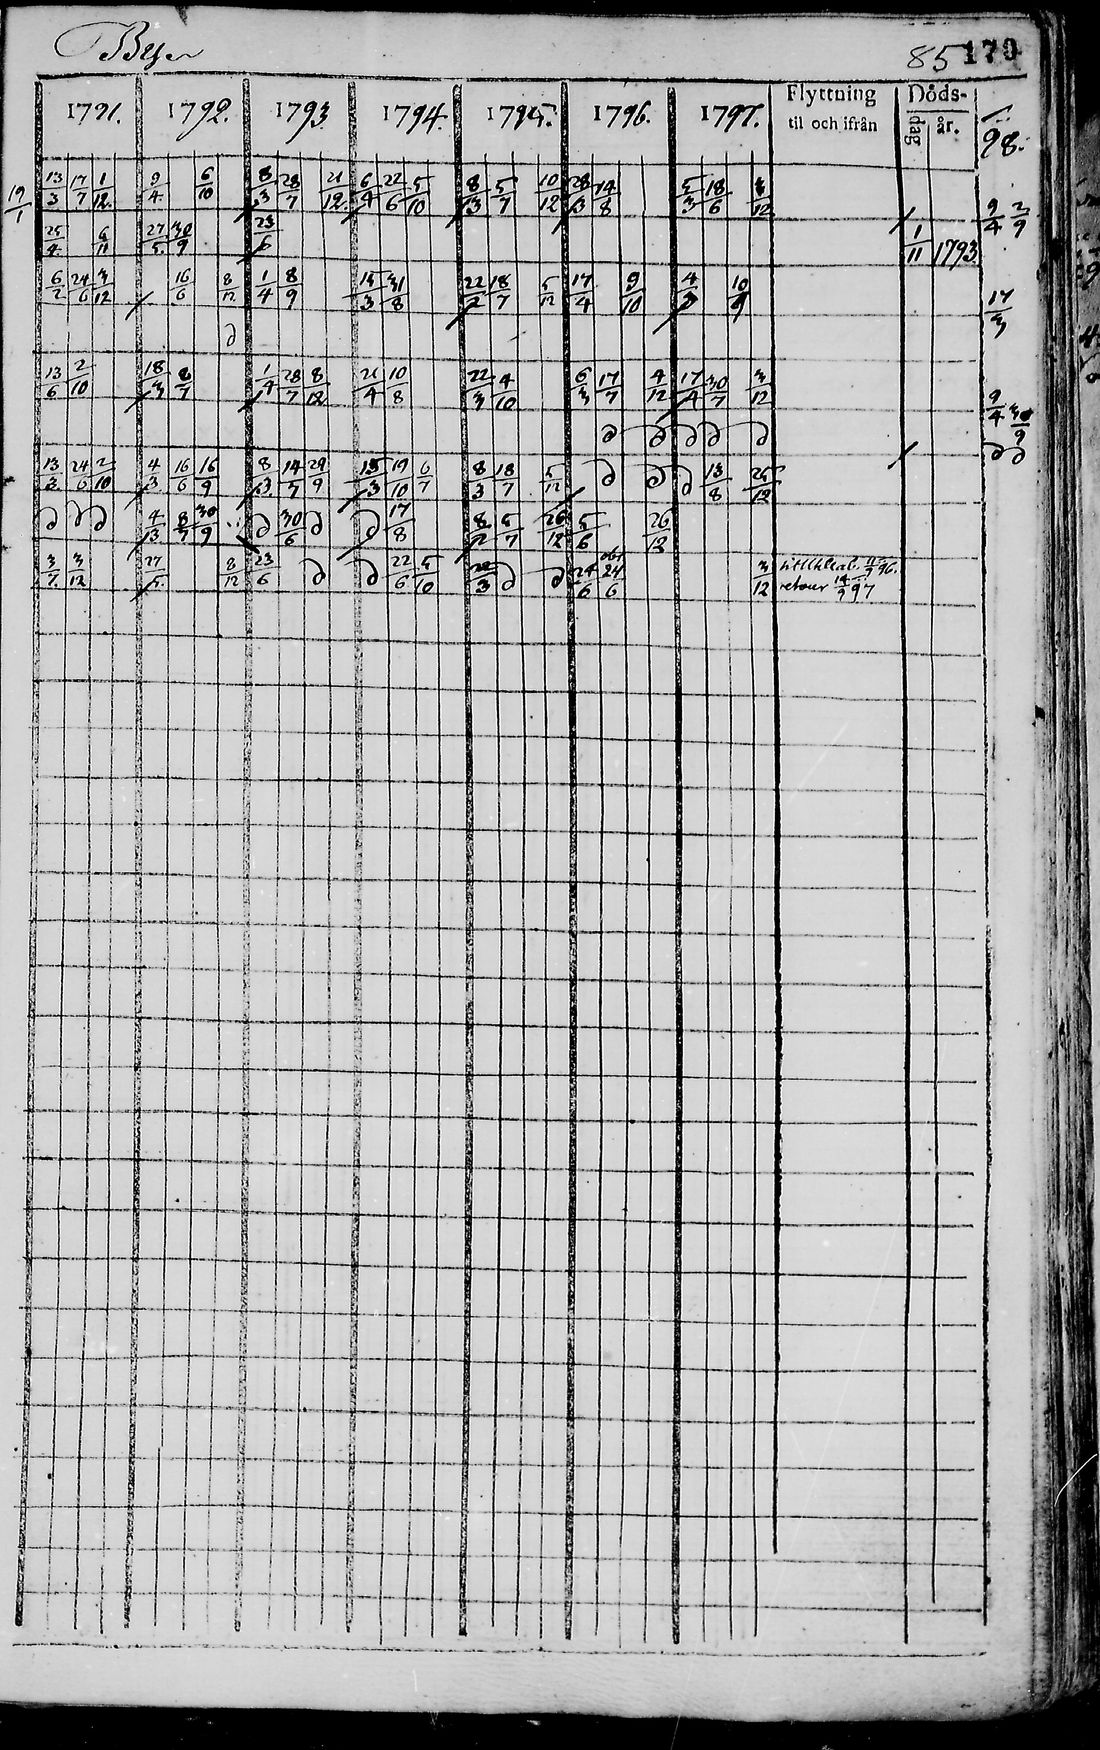 By
85 170
1791. 1792. 1793. 1794. 1795. 1796. 1797. Flyttning til och ifrån Döds-dag år. 98.
19/1 13/3 17/7 1/12 9/4 6/10 8/3 28/7 21/12 6/4 22/6 5/10 8/3 5/7 10/12 28/3 14/8 5/3 18/6 3/12 9/4 2/9
25/4 6/11 27/5 30/9 23/6 1/11 1793
6/2 24/6 3/12 16/6 8/12 1/4 8/9 15/3 31/8 22/2 18/7 5/12 17/4 9/10 4/3 10/9 17/3
∂
13/6 2/10 18/3 8/7 1/4 28/7 8/12 21/4 10/8 22/3 4/10 6/3 17/7 4/12 17/4 30/7 3/12 9/4 30/9
∂ ∂ ∂ ∂ ∂ ∂ ∂
13/3 24/6 2/10 4/3 16/6 16/9 8/3 14/7 29/9 15/3 19/10 6/7 8/3 18/7 5/12 ∂ ∂ ∂ 13/8 26/12
∂ ∂ ∂ 4/3 8/7 30/9 ∂ 30/6 ∂ ∂ 17/8 8/2 5/7 26/12 5/6 26/12
3/7 3/12 27/5 8/12 23/6 ∂ ∂ 22/6 5/10 22/3 ∂ ∂ 24/6 24/6 3/12 96.
retour 14/9 97